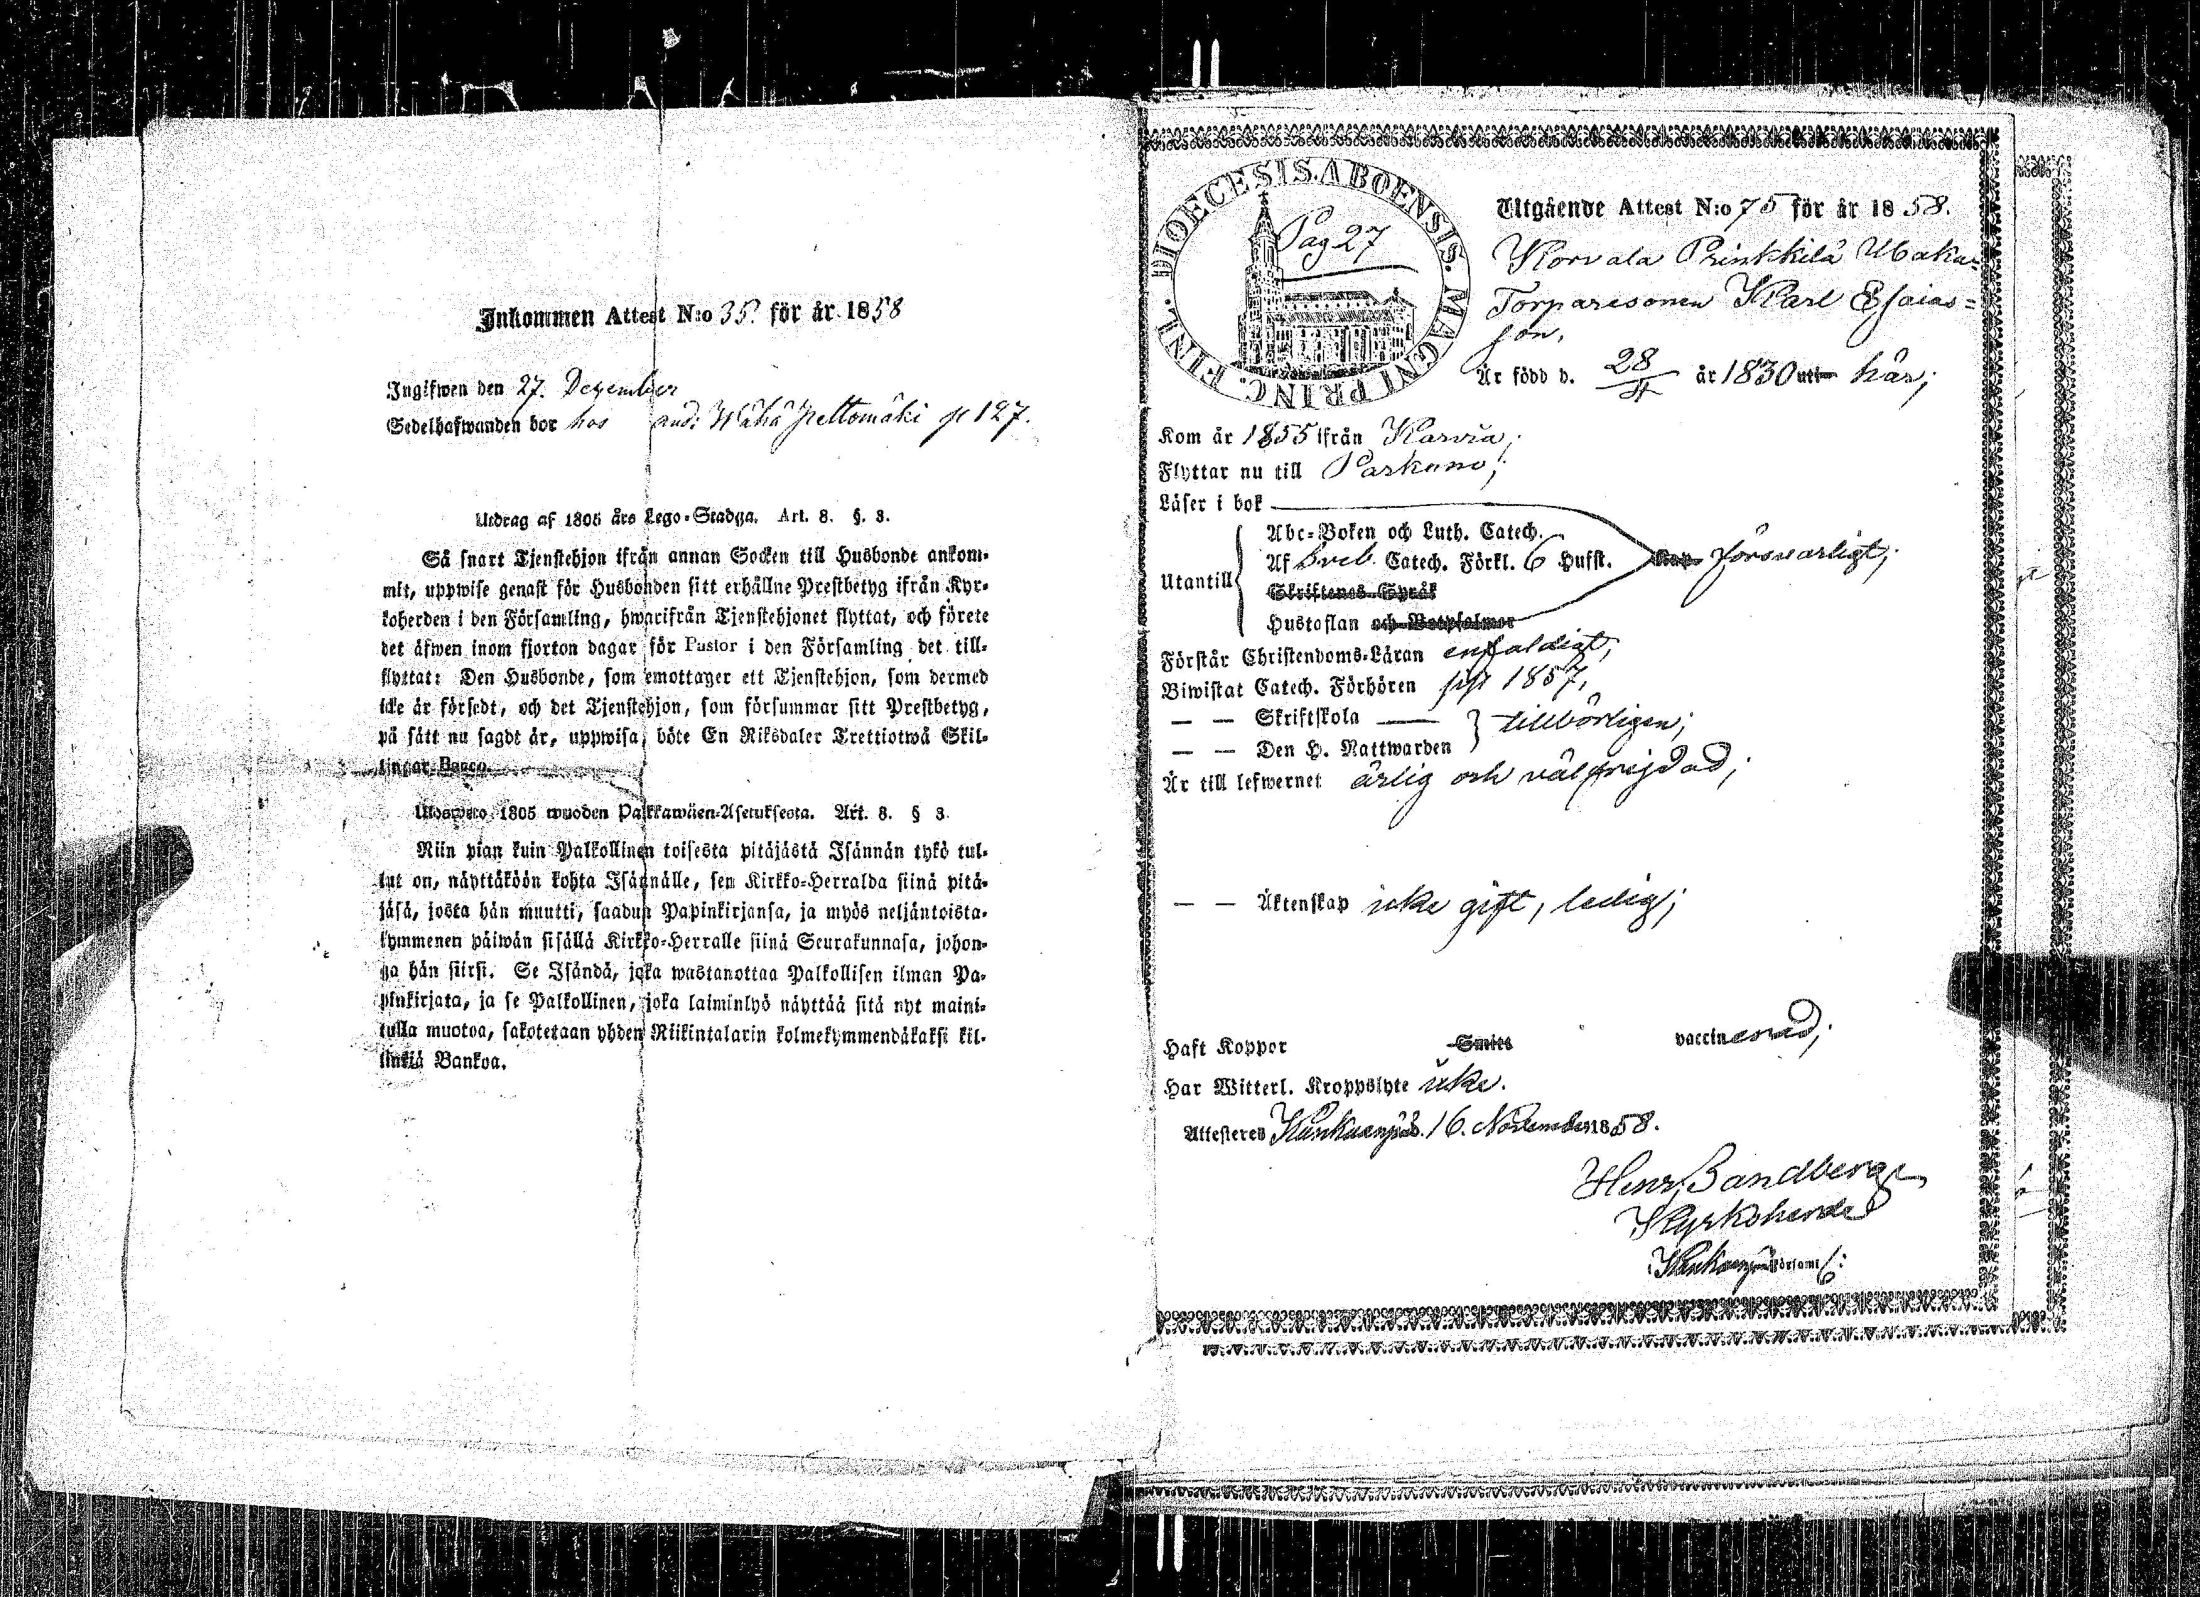 Inkommen Attest N:o 35. för år 1858
Ingifwen den 27. Dezember
Sedelhafwanden bor hos Wähä peltomäki p 127.
Utdrag af 1805 års Lego-Stadga. Art. 8. §. 3.
Så snart Tjenstehjon ifrån annan Socken till Husbonde ankom-
mit, uppwise genast för Husbonden sitt erhållne Prestbetyg ifrån Kyr-
koherden i den Församling, hwarifrån Tjenstehjonet flyttat, och förete
det äfwen inom fjorton dagar för Pastor i den Församling det till-
flyttat: Den Husbonde, som emottager ett Tjenstehjon, som dermed
icke är försedt, och det Tjenstehjon, som försummar sitt Prestbetyg,
på sätt nu sagdt är, uppwisa, böte En Riksdaler Trettiotwå Skil-
lingar Banco.
Ulosweto 1805 wuoden Palkkawäen-Asetuksesta. Art. 8. § 3.
Niin pian kuin Palkollinen toisesta pitäjästä Isännän tykö tul-
lut on, näyttäköön kohta Isännälle, sen Kirkko-Herralda siinä pitä-
jäsä, josta hän muutti, saadun Papinkirjansa, ja myös neljäntoista-
kymmenen päiwän sisällä Kirkko-Herralle siinä Seurakunnasa, johon-
ga hän siirsi. Se Isändä, joka wastanottaa Palkollisen ilman Pa-
pinkirjata, ja se Palkollinen, joka laiminlyö näyttää sitä nyt maini-
tulla muotoa, sakotetaan yhden Riikintalarin kolmekymmendäkaksi kil-
linkiä Bankoa.
DIOECESIS. ABOENSIS. MAGNI PRINC. FINL.
Pag 27
Utgående Attest N:o 75 för år 1858.
Korvala Prinkkilä
Torparesonen Karl Esaias=
son,
Är född d. 28 år 1830 uti här;
Kom år 1855 ifrån Karvia;
Flyttar nu till Parkano;
Läser i bok
Abc-Boken och Luth. Catech.
Utantill Af Sveb. Catech. Förkl. 6 Hufst. försvarligt;
Skriftenes Språk
Hustaflan och Botpsalmer
Förstår Christendoms-Läran enfaldigt;
Biwistat Catech. Förhören sist 1857,
— — Skriftskola —
— — Den H. Nattwarden tillbörligen;
Är till lefwernet ärlig och välfrejdad;
— — Äktenskap icke gift, ledig;
Haft Koppor Smitt vaccinerad;
Har Witterl. Kroppslyte icke.
Attesteres Kankaanpää d. 16. November 1858.
Henr. Sandberg
Kyrkoherde
Kankaanpää församl: